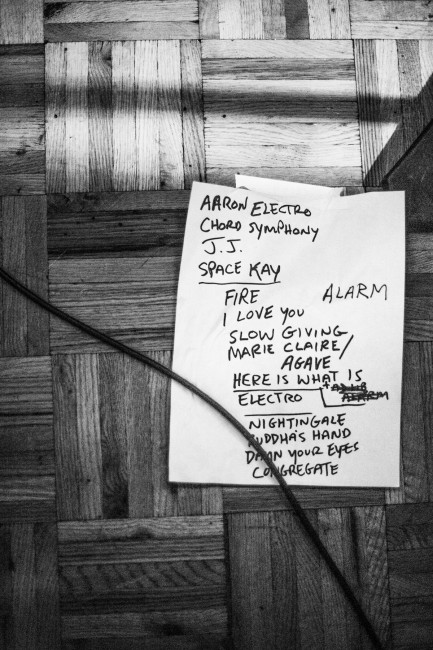 AARON ELECTRO
CHORD SYMPHONY
J.J.
SPACE KAY
FIRE ALARM
I LOVE YOU
SLOW GIVING
MARIE CLAIRE/
AGAVE
HERE IS WHAT IS
ELECTRO
NIGHTINGALE
BUDDHA'S HAND
DAMN YOUR EYES
CONGREGATE